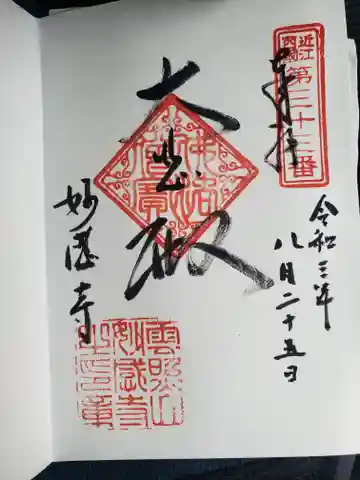 近江西国
第三十三番
奉拝
令和三年
八月二十五日
大悲殿
妙感寺
雲照山
妙感寺
之印章